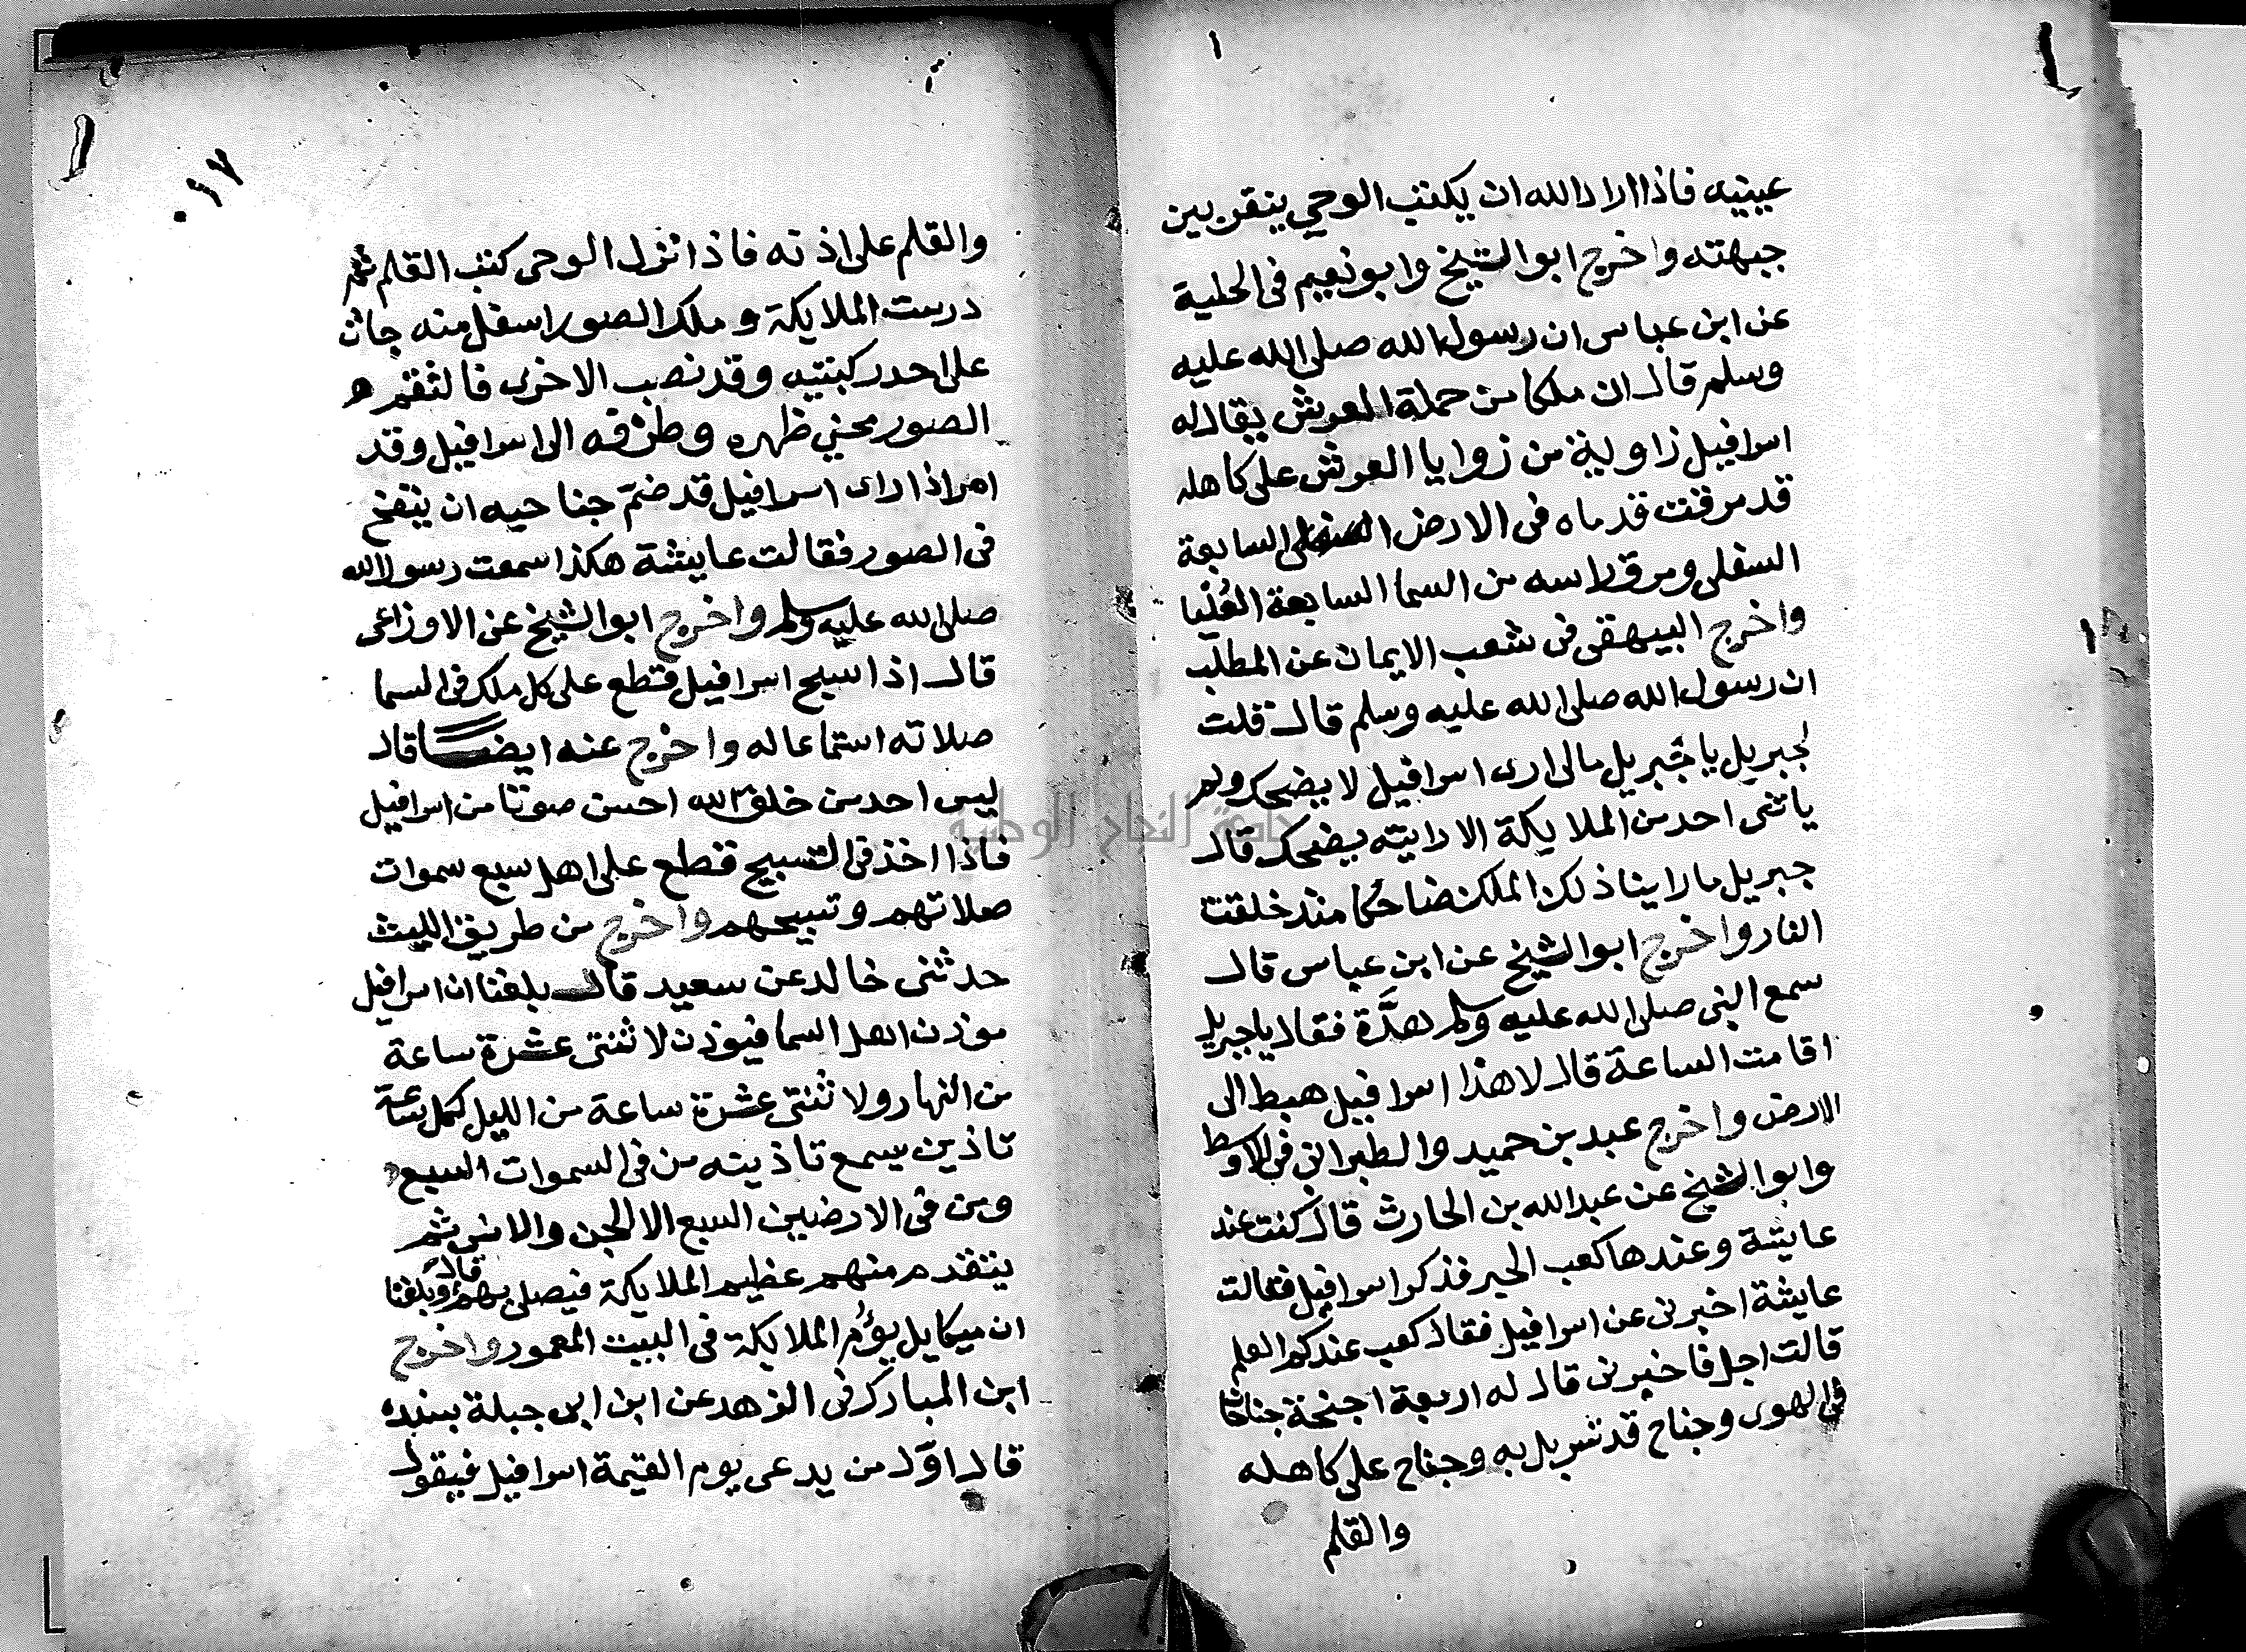 عينيه فاذا اراد الله ان يكتب الوحي ينقر بين
جبهته واخرج ابو الشيخ وابو نعيم في الحلية
عن ابن عباس ان رسول الله صلى الله عليه
وسلم قال ان ملكا من حملة العرش يقال له
اسرافيل زاوية من زوايا العرش على كاهله
قد مرقت قدماه في الارض السابعة
السفلى ومرق راسه من السما السابعة العُليا
واخرج البيهقى فى شعب الايمان عن المطلب
ان رسول الله صلى الله عليه وسلم قال قلت
لجبريل يا جبريل مالى ارى اسرافيل لا يضحك ولم
ياتنى احد من الملايكة الا رايته يضحك قال
جبريل ما راينا ذلك الملك ضاحكا منذ خلقت
النار واخرج ابو الشيخ عن ابن عباس قال
سمع النبى صلى الله عليه وسلم هدَّة فقال يا جبريل
اقامت الساعة قال لا هذا اسرافيل هبط الى
الارض واخرج عبد بن حميد والطبرانى فى الاوسط
وابو الشيخ عن عبد الله بن الحارث قال كنت عند
عايشة وعندها كعب الحبر فذكر اسرافيل فقالت
عايشة اخبرنى عن اسرافيل فقال كعب عندكم العلم
قالت اجل فاخبرنى قال له اربعة اجنحة جناحان
فى الهوى وجناح قد تسربل به وجناح على كاهله
والقلم
١٧
والقلم على اذنه فاذا نزل الوحى كتب القلم ثم
درست الملايكة وملك الصور اسفل منه جاث
على احد ركبتيه وقد نصب الاخرى فالتقم
الصور محني ظهره وطرفه الى اسرافيل وقد
امر اذا راى اسرافيل قد ضمّ جناحيه ان ينفخ
فى الصور فقالت عايشة هكذا سمعت رسول الله
صلى الله عليه وسلم واخرج ابو الشيخ عن الاوزاعى
قال اذا سبح اسرافيل قطع على كل ملك فى السما
صلاته استماعا له واخرج عنه ايضا قال
ليس احد من خلق الله احسن صوتا من اسرافيل
فاذا اخذ فى التسبيح قطع على اهل سبع سموات
صلاتهم وتسبيحهم واخرج من طريق الليث
حدثنى خالد عن سعيد قال بلغنا ان اسرافيل
موذن اهل السما فيوذن لاثنتى عشرة ساعة
من النهار ولاثنتى عشرة ساعة من الليل لكل ساعة
تاذين يسمع تاذينه من فى السموات السبع
ومن فى الارضين السبع الا الجن والانس ثم
يتقدم منهم عظيم الملايكة فيصلى بهم قال وبلغنا
ان ميكايل يؤم الملايكة فى البيت المعمور واخرج
ابن المبارك فى الزهد عن ابن ابى جبلة بسنده
قال اوّل من يدعى يوم القيمة اسرافيل فيقول
جامعة النجاح الوطنية